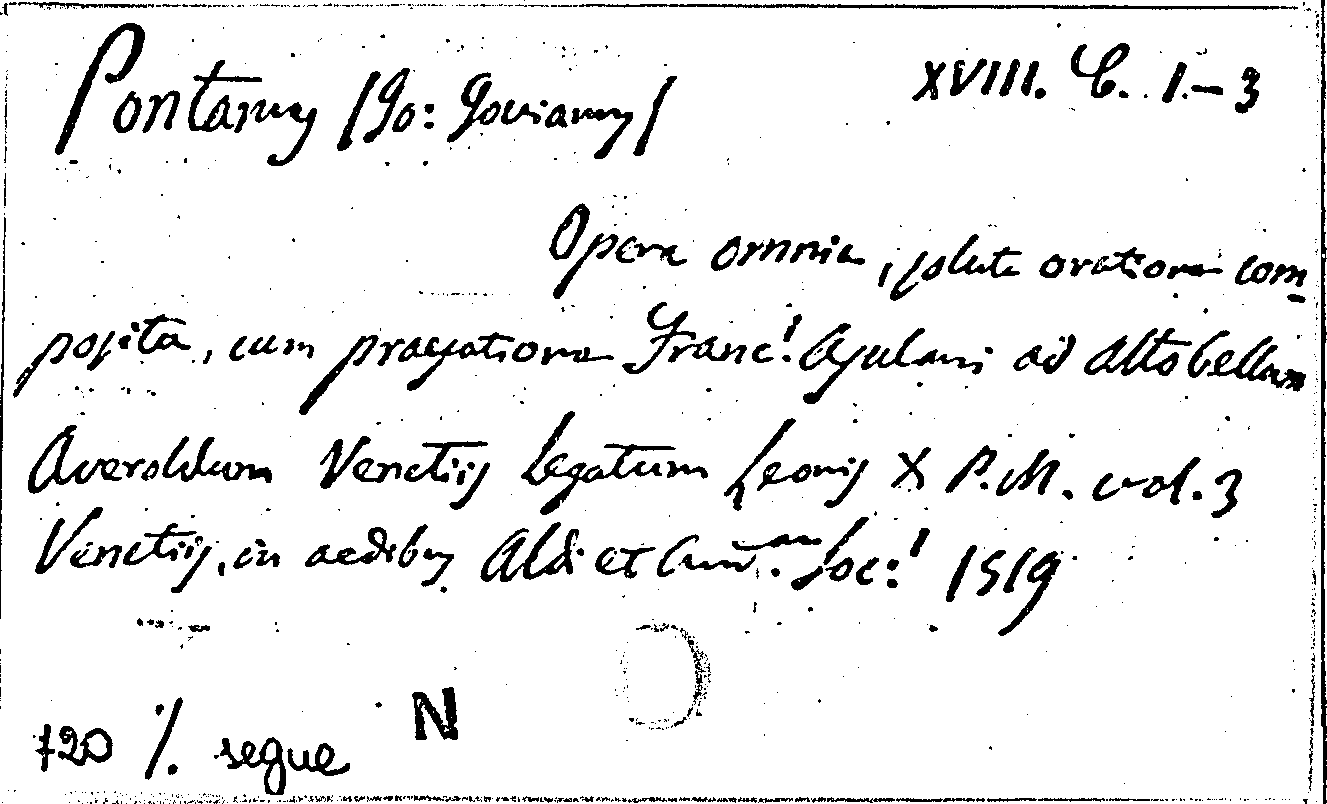 Pontanus /Jo: Jovianus/ XVIII. C. 1.-3
Opera omnia, soluta oratione com-
posita, cum praefatione Franc.! Asulani ad Altobellum
Averoldum Venetiis Legatum Leonis X P.M. vol. 3
Venetiis, in aedibus Aldi et And. Soc:! 1519
720 /. segue N